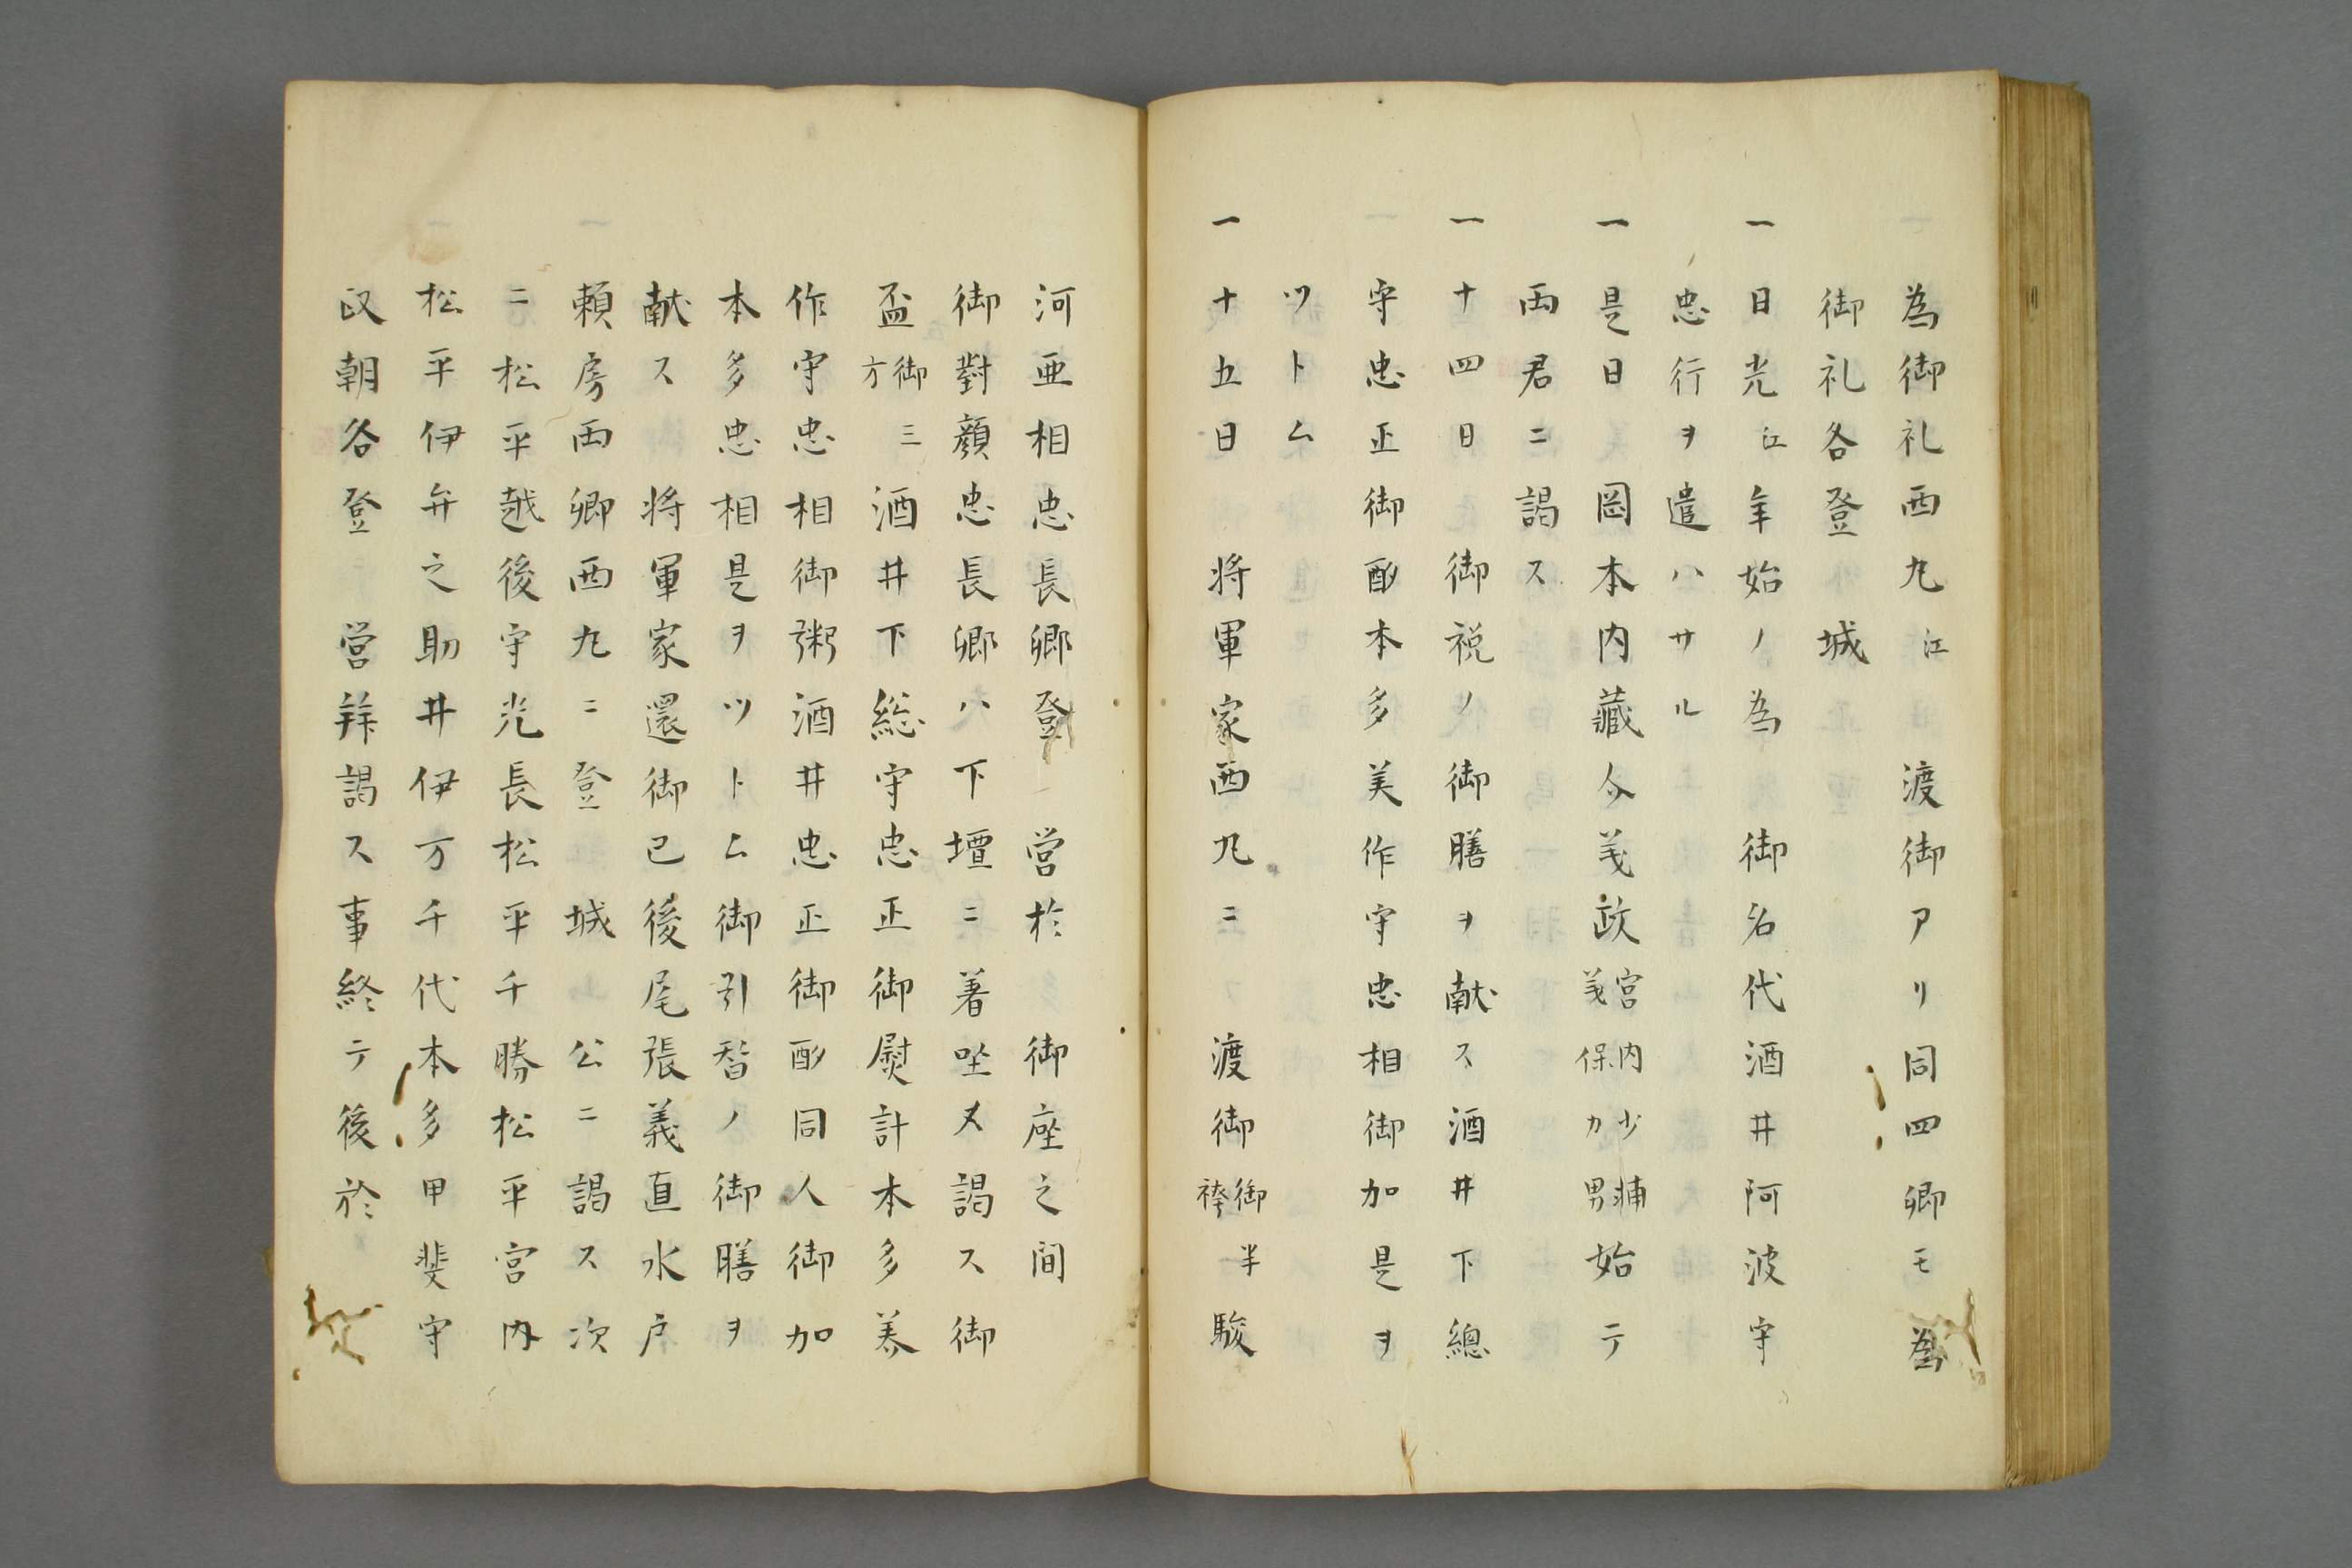 為御礼西丸江　渡御アリ同四卿モ為
御礼各登　城
一日光江年始ノ為　御名代酒井阿波守
忠行ヲ遣ハサル
一是日　岡本内藏介義政宮内少輔義保カ男始テ
両君ニ謁ス
一十四日　御祝ノ御膳ヲ献ス酒井下總
守忠正御酌本多美作守忠相御加是ヲ
ツトム
一十五日　将軍家西丸ニ　渡御御半袴駿
河亜相忠長卿登　営於　御座之間
御對顔忠長卿ハ下壇ニ著坐〆謁ス御
盃御三方酒井下総守忠正御熨計本多美
作守忠相御粥酒井忠正御酌同人御加
本多忠相是ヲツトム御引替ノ御膳ヲ
献ス　将軍家還御已後尾張義直水戸
頼房両卿西丸ニ登　城　公ニ謁ス次
ニ松平越後守光長松平千勝松平宮内
松平伊弁之助井伊万千代本多甲斐守
政朝各登　営拜謁ス事終テ後於